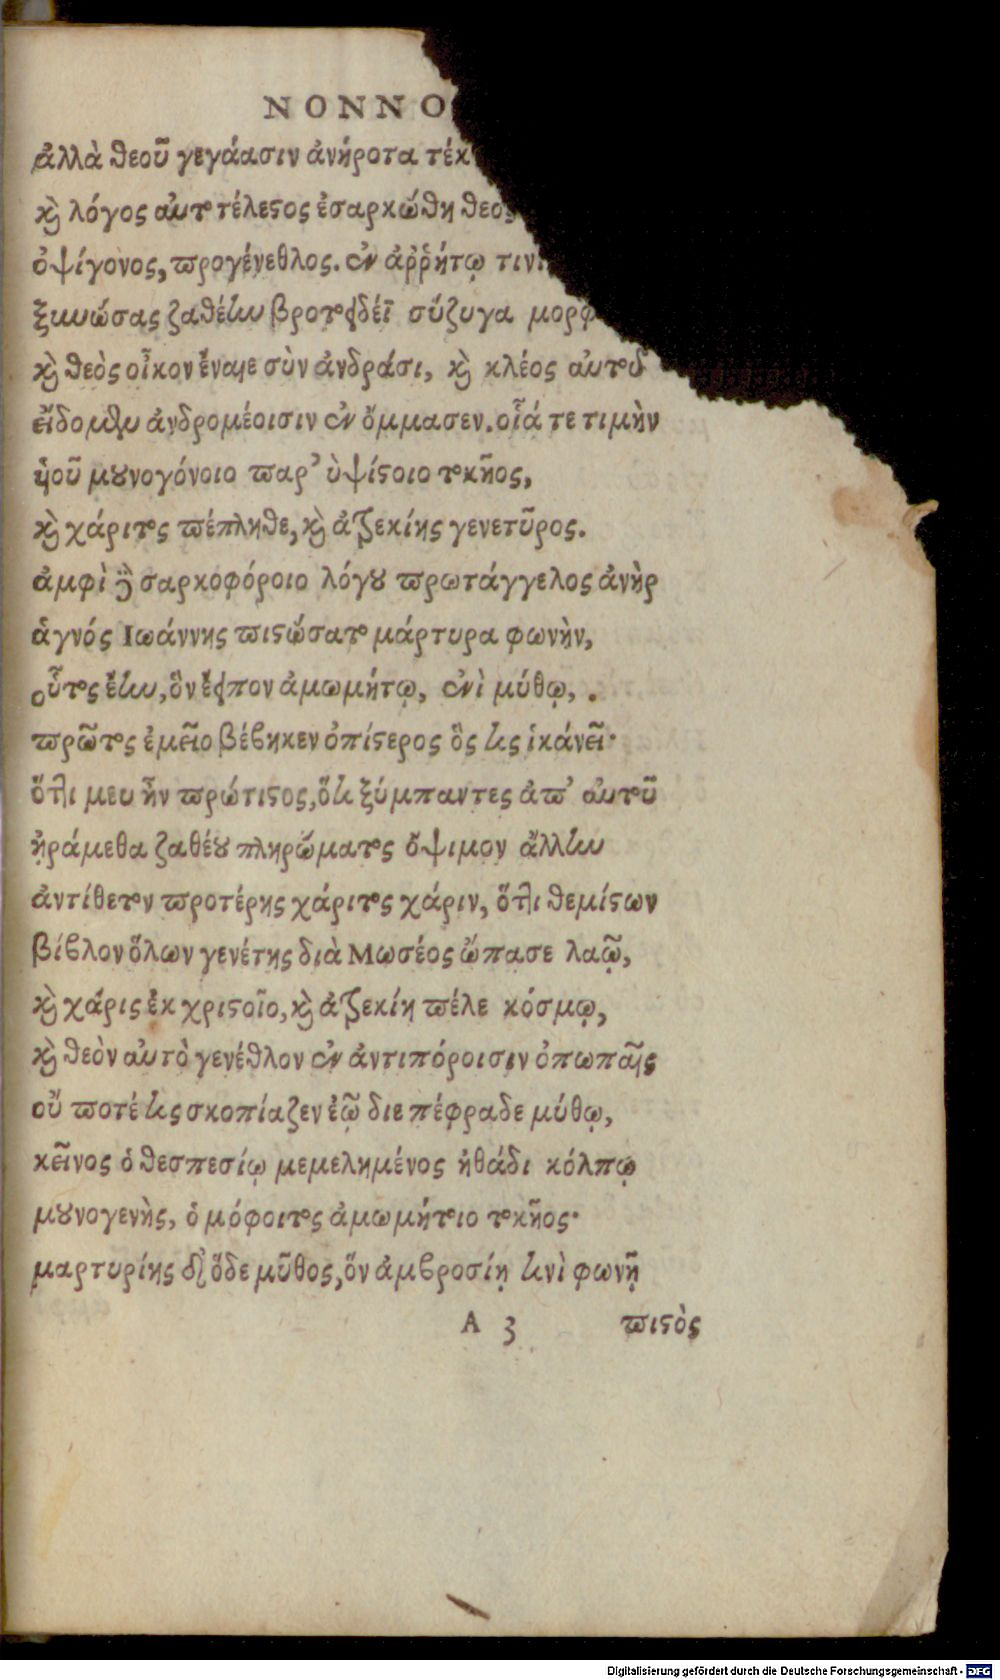 ΝΟΝΝΟ
ἀλλὰ θεοῦ γεγάασιν ἀνήροτα τέκ
κὴ λόγος αὐτοτέλεστος ἐσαρκώθη θεὸς
ὀψίγονος, προγένεθλος. ἐν ἀῤῥήτῳ τινὶ
ξυνώσας ζαθέην βροτοειδέϊ σύζυγα μορφ
κὴ θεὸς οἶκον ἔναιε σὺν ἀνδράσι, κὴ κλέος αὐτοῦ
εἴδομεν ἀνδρομέοισιν ἐν ὄμμασεν. οἷά τε τιμὴν
ὑοῦ μουνογόνοιο παρ’ ὑψίστοιο τοκῆος,
κὴ χάριτος πέπληθε, κὴ ἀτρεκίης γενετῦρος.
ἀμφὶ ἢ σαρκοφόροιο λόγου πρωτάγγελος ἀνὴρ
ἁγνός Ιωάννης πιστώσατο μάρτυρα φωνὴν,
οὗτος ἔην, ὃν ἔειπον ἀμωμήτῳ, ἐνὶ μύθῳ, .
πρῶτος ἐμεῖο βέβηκεν ὀπίστερος ὃς τις ἱκάνει·
ὅττι μευ ἦν πρώτιστος, ὅτι ξύμπαντες ἀπ’ αὐτοῦ
ἠράμεθα ζαθέου πληρώματος ὄψιμον ἄλλην
ἀντίθετον προτέρης χάριτος χάριν, ὅττι θεμίστων
βίβλον ὅλων γενέτης διὰ Μωσέος ὤπασε λαῷ,
κὴ χάρις ἐκ χριστοῖο, κὴ ἀτρεκίη πέλε κόσμῳ,
κὴ θεὸν αὐτὸ γενέθλον ἐν ἀντιπόροισιν ὀπωπαῖς
οὔ ποτέ τις σκοπίαζεν ἑῷ διεπέφραδε μύθῳ,
κεῖνος ὁ θεσπεσίῳ μεμελημένος ἠθάδι κόλπῳ
μουνογενὴς, ὁμόφοιτος ἀμωμήτοιο τοκῆος·
μαρτυρίης δ’ ὅδε μῦθος, ὅν ἀμβροσίῃ τινὶ φωνῇ
Α 3 πιστὸς
Digitalisierung gefördert durch die Deutsche Forschungsgemeinschaft - DFG